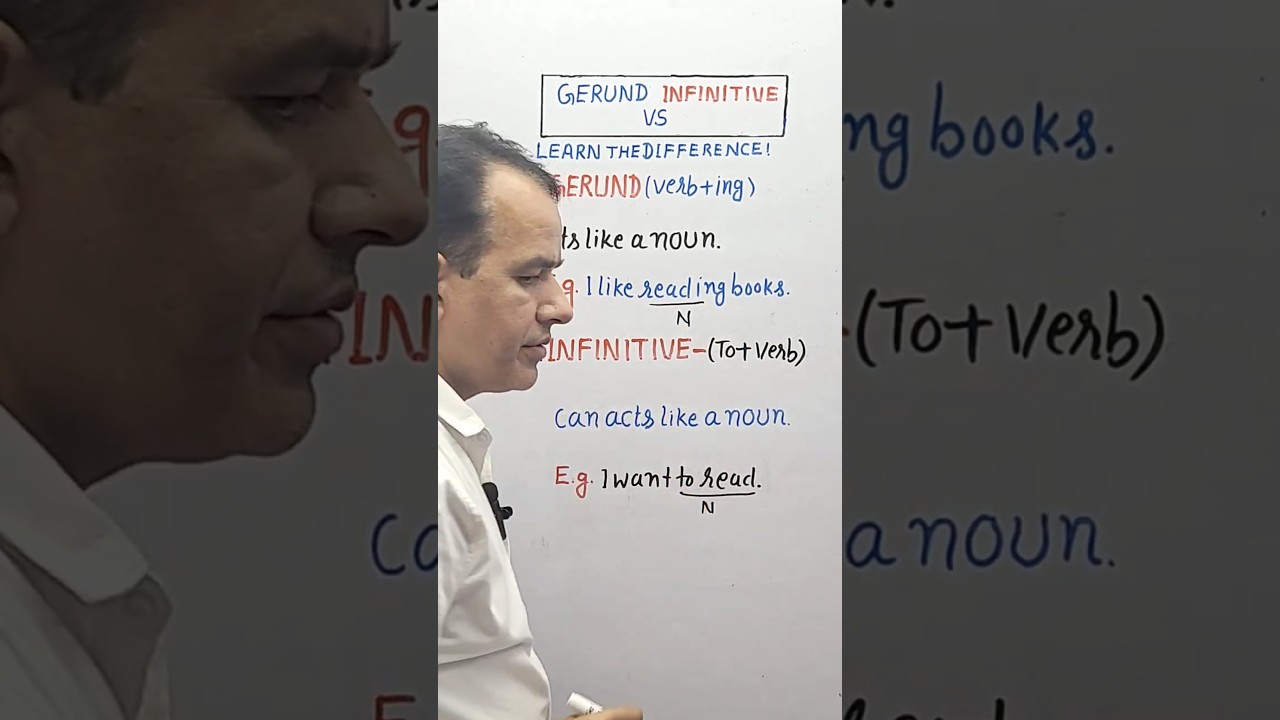 GERUND INFINITIVE
VS
LEARN THE DIFFERENCE!
GERUND (verb+ing)
like a noun.
I like reading books.
N
INFINITIVE-(To+verb)
can acts like a noun.
E.g. I want to read.
N